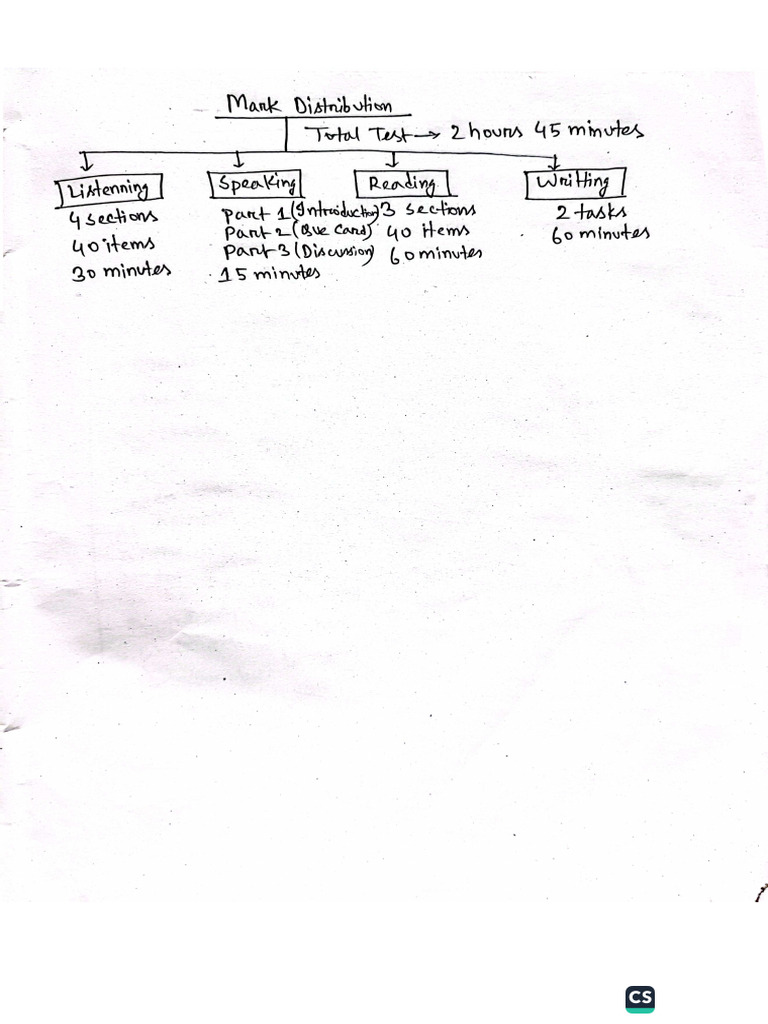 Mark Distribution
Total Test → 2 hours 45 minutes
Listenning
4 sections
40 items
30 minutes
Speaking
part 1 (Introduction)
Part 2 (Que Card)
Part 3 (Discussion)
15 minutes
Reading
3 sections
40 Items
60 minutes
Writting
2 tasks
60 minutes
CS